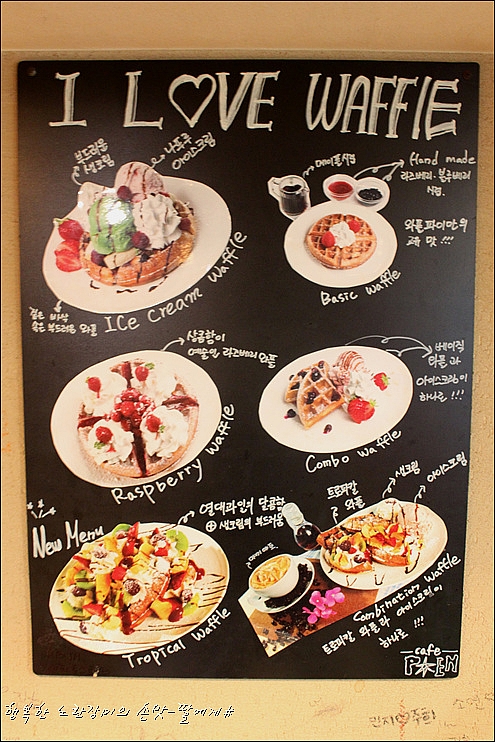 I LOVE WAFFlE
부드러운
생크림
나뚜루
아이스크림
Ice Cream Waffle
겉은 바삭
속은 부드러운 와플
메이플시럽
Hand made
라즈베리. 블루베리
시럽.
와플파이만의
제 맛 !!!
Basic Waffle
상큼함이
예술인 라즈베리 와플
Raspberry Waffle
베이직
와플 과
아이스크림이
하나로 !!!
Combo Waffle
New Menu
열대과일의 달콤함
⊕ 생크림의 부드러움
Tropical Waffle
트로피칼
와플
생크림
아이스크림
Combination Waffle
트로피칼 와플과 아이스크림이
하나로 !!!
cafe
행복한 노란장미의 손맛~딸에게#